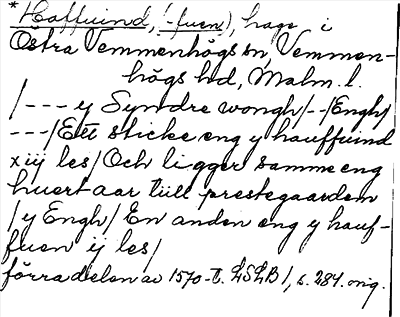 * Haffuind, (-fuen), hage i
Östra Vemmenhögs sn, Vemmen-
högs hd, Malm. l.
/--- y Syndre wongh/--/Engh/
---/Ett sticke eng y hauffuind
xiij les/Och ligger samme eng
huert aar till prestegaarden
/y Engh/ En anden eng y hauf-
fuen ij les/
förra delen av 1570-t. LSLB 1, s. 284. orig.